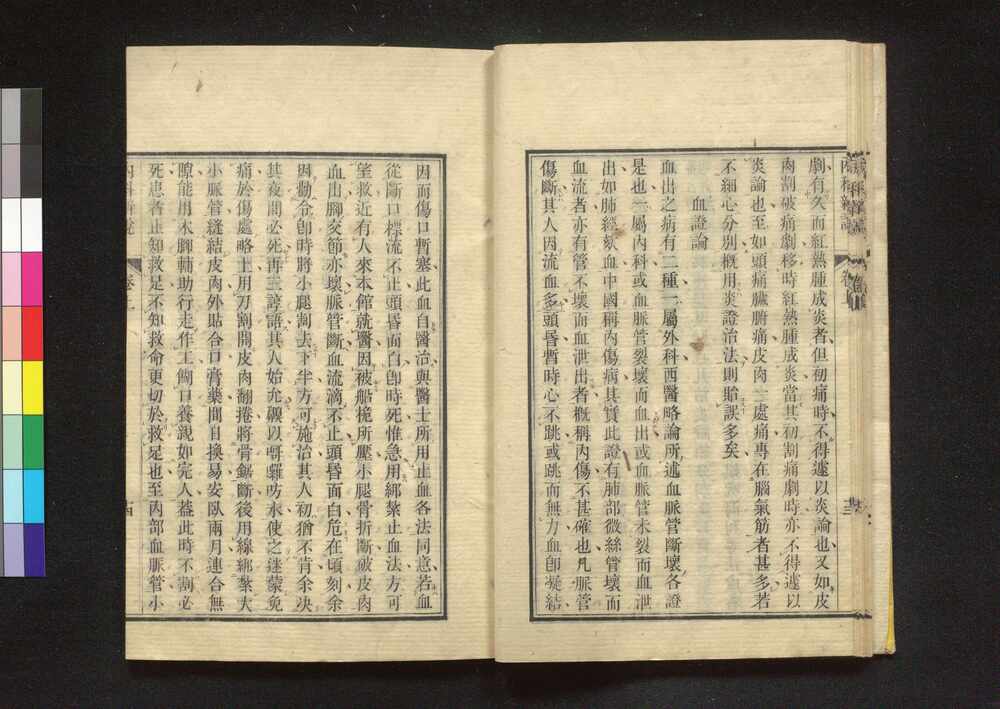 劇有久而紅熱腫成炎者但初痛時不得遽以炎論也又如皮
肉割破痛劇移時紅熱腫成炎當其初割痛劇時亦不得遽以
炎論也至如頭痛臟腑痛皮肉之處痛專在腦氣筋者甚多若
不細心分別概用炎證治法則貽誤多矣
血證論
血出之病有二種一屬外科西醫略論所述血脈管斷壞各證
是也一屬內科或血脈管裂壞而血出或血脈管未裂而血泄
出如肺經欬血中國稱內傷病其實此證有肺部微絲管壞而
血流者亦有管不壞而血泄出者概稱內傷不甚確也凡脈管
傷斷其人因流血多頭昏暫時心不跳或跳而無力血卽凝結
因而傷口暫塞此血自醫治與醫士所用止血各法同意若血
從斷口標流不止頭昏面白卽時死惟急用綁紮止血法方可
望救近有人來本館就醫因被船桅所壓小腿骨折斷破皮肉
血出腳交節亦壞脈管斷血流滴不止頭昏面白危在頃刻余
因勸令卽時將小腿割去下半方可施治其人初猶不肯余决
其夜間必死再三諄語其人始允飭以㖿囉吩水使之迷蒙免
痛於傷處略上用刀割開皮肉翻捲將骨鋸斷後用線綁紮大
小脈管縫結皮肉外貼合口膏藥間日換易安臥兩月連合無
隙能用木腳輔助行走作工餬口養親如完人蓋此時不割必
死患者止知救足不知救命更切於救足也至內部血脈管小
內科新說 卷上 十四